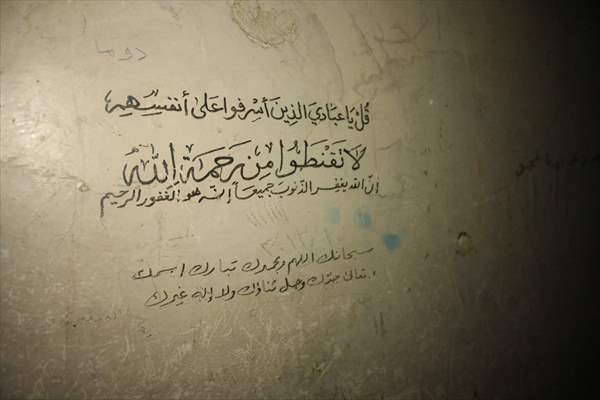 دوما
قُلْ يَا عِبَادِيَ الَّذِينَ أَسْرَفُوا عَلَى أَنْفُسِهِمْ
لَا تَقْنَطُوا مِنْ رَحْمَةِ اللَّهِ
إنّ الله يغفر الذنوب جميعاً إنّه هو الغفور الرحيم
سبحانك اللهم وبحمدك تبارك اسمك
وتعالى جدّك وجل ثناؤك ولا إله غيرك